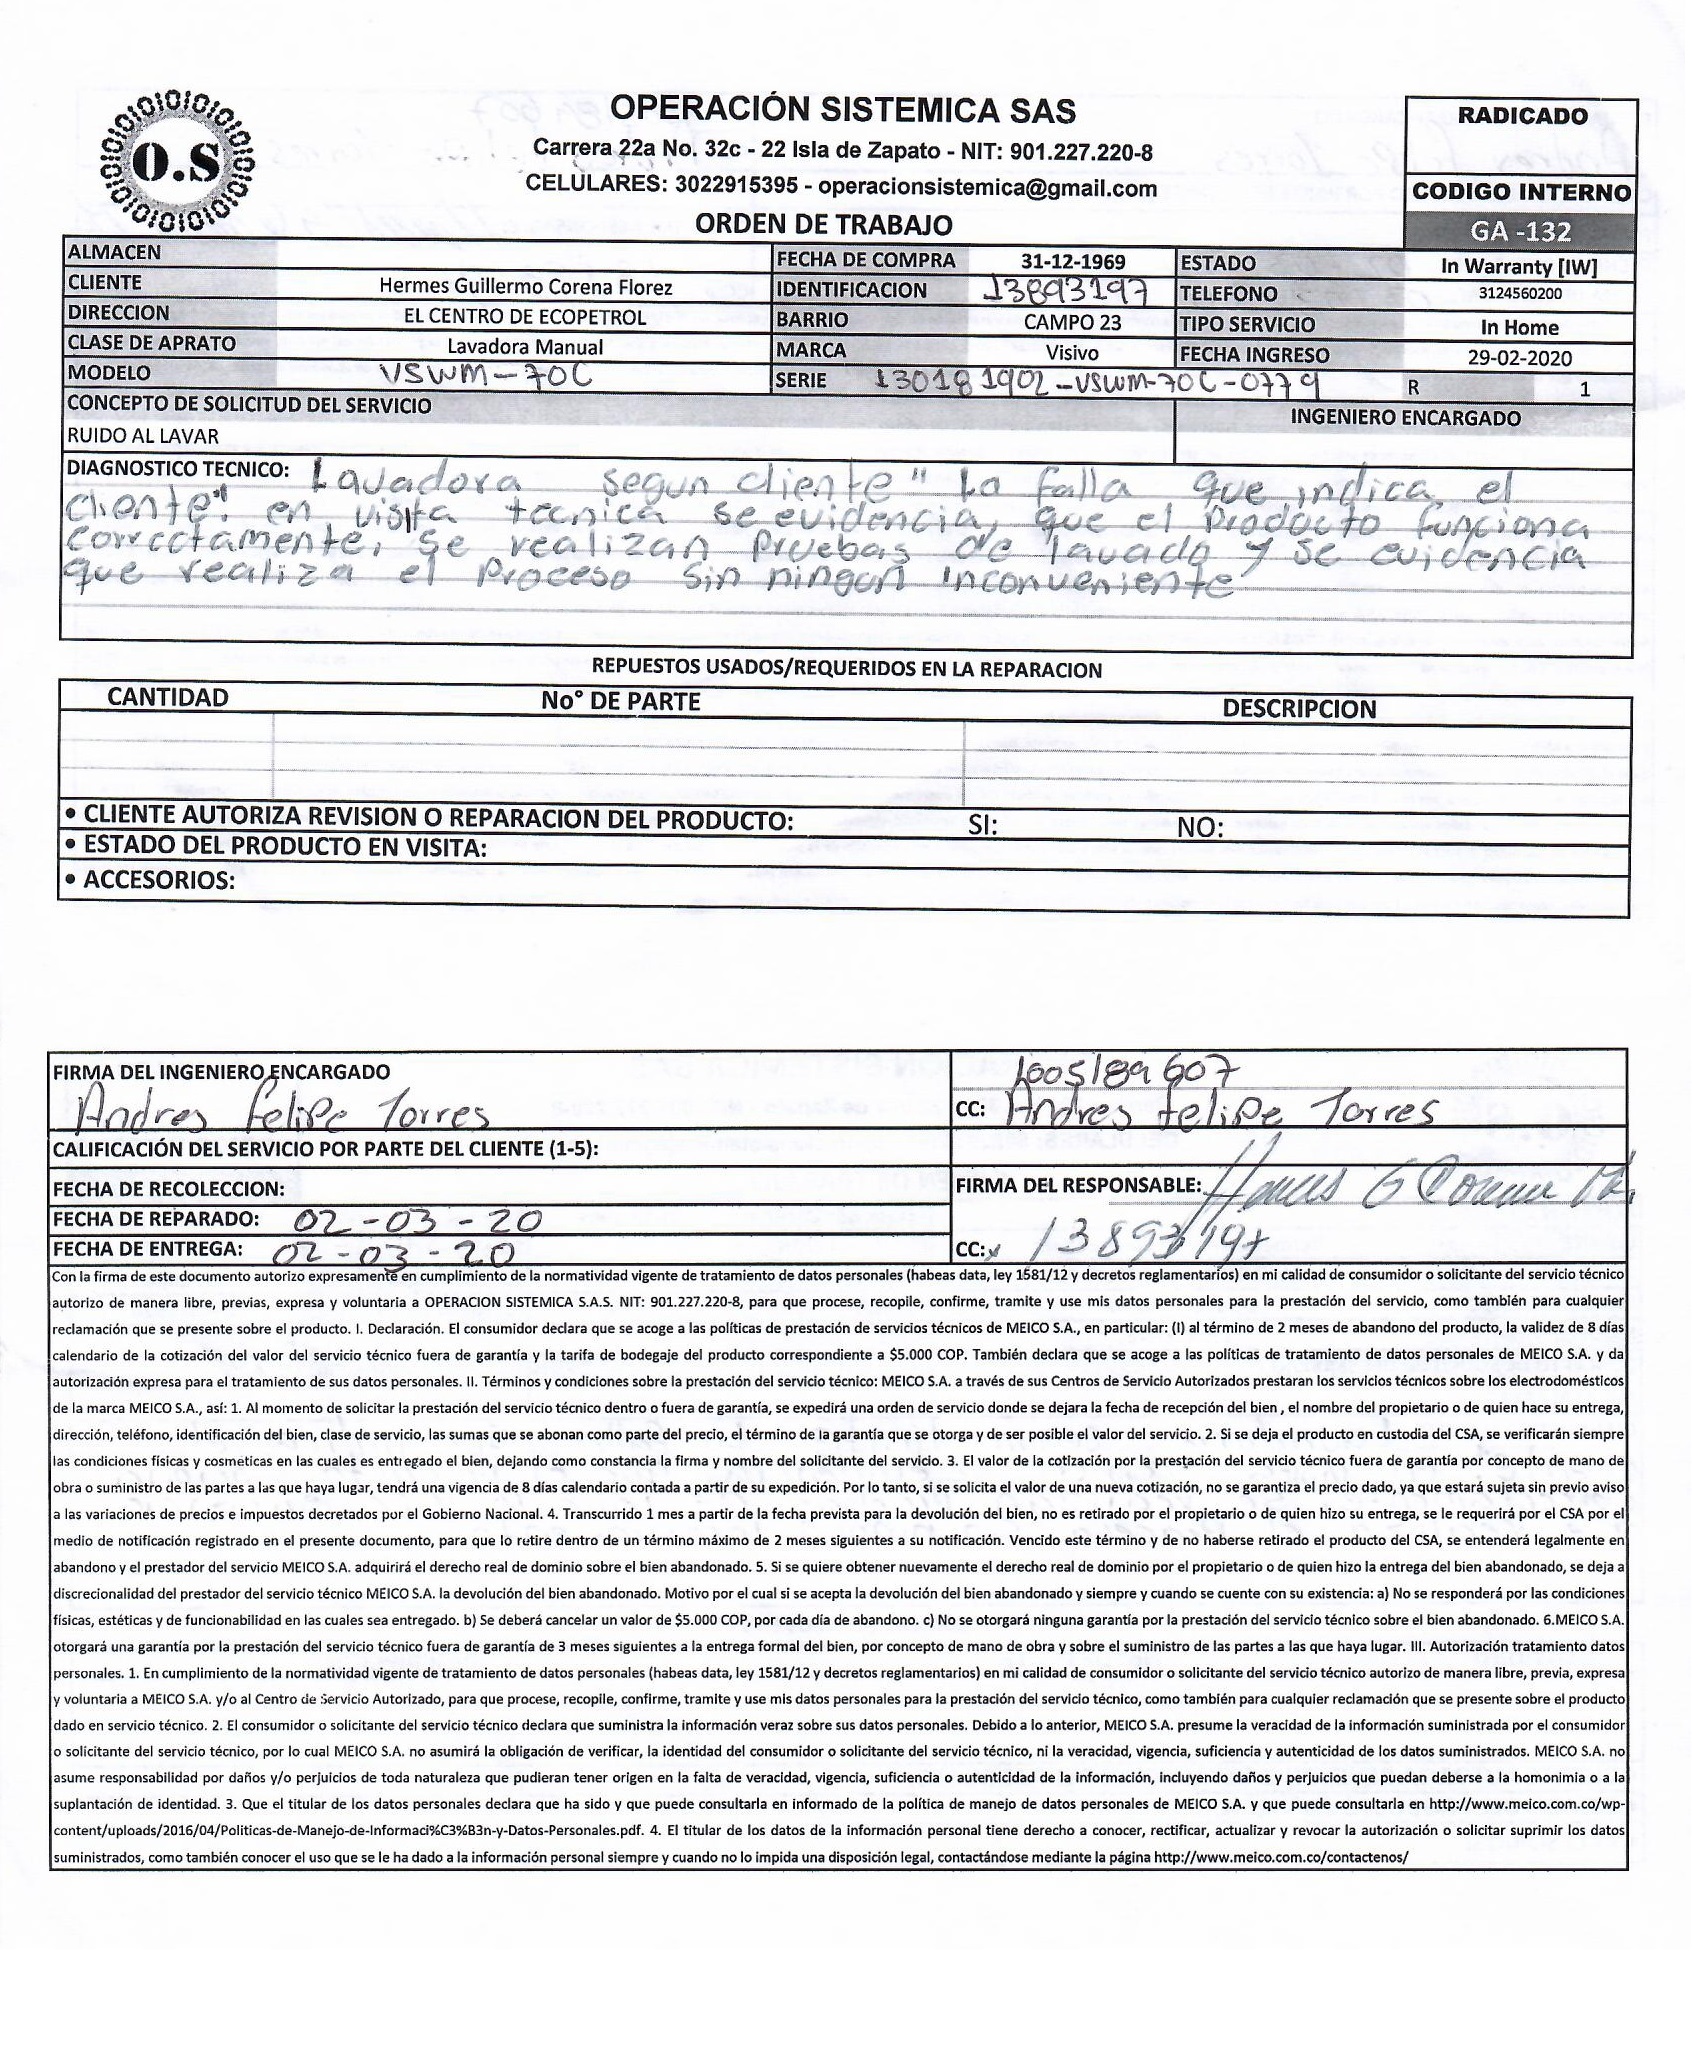 O.S
OPERACIÓN SISTEMICA SAS
Carrera 22a No. 32c - 22 Isla de Zapato - NIT: 901.227.220-8
CELULARES: 3022915395 - operacionsistemica@gmail.com
ORDEN DE TRABAJO
RADICADO
CODIGO INTERNO
GA -132
ALMACEN FECHA DE COMPRA 31-12-1969 ESTADO In Warranty [IW]
CLIENTE Hermes Guillermo Corena Florez IDENTIFICACION 13893197 TELEFONO 3124560200
DIRECCION EL CENTRO DE ECOPETROL BARRIO CAMPO 23 TIPO SERVICIO In Home
CLASE DE APRATO Lavadora Manual MARCA Visivo FECHA INGRESO 29-02-2020
MODELO VSWM-70C SERIE 130181902-VSWM-70C-0779 R 1
CONCEPTO DE SOLICITUD DEL SERVICIO INGENIERO ENCARGADO
RUIDO AL LAVAR
DIAGNOSTICO TECNICO: Lavadora segun cliente " La falla que indica el
cliente" en visita tecnica se evidencia, que el Producto funciona
correctamente, se realizan Pruebas de lavado y se evidencia
que realiza el Proceso sin ningun inconveniente
REPUESTOS USADOS/REQUERIDOS EN LA REPARACION
CANTIDAD No° DE PARTE DESCRIPCION
• CLIENTE AUTORIZA REVISION O REPARACION DEL PRODUCTO: SI: NO:
• ESTADO DEL PRODUCTO EN VISITA:
• ACCESORIOS:
FIRMA DEL INGENIERO ENCARGADO 1005189607
Andres Felipe Torres CC: Andres Felipe Torres
CALIFICACIÓN DEL SERVICIO POR PARTE DEL CLIENTE (1-5):
FECHA DE RECOLECCION: FIRMA DEL RESPONSABLE:
FECHA DE REPARADO: 02-03-20
FECHA DE ENTREGA: 02-03-20 CC: 13893197
Con la firma de este documento autorizo expresamente en cumplimiento de la normatividad vigente de tratamiento de datos personales (habeas data, ley 1581/12 y decretos reglamentarios) en mi calidad de consumidor o solicitante del servicio técnico
autorizo de manera libre, previas, expresa y voluntaria a OPERACION SISTEMICA S.A.S. NIT: 901.227.220-8, para que procese, recopile, confirme, tramite y use mis datos personales para la prestación del servicio, como también para cualquier
reclamación que se presente sobre el producto. I. Declaración. El consumidor declara que se acoge a las políticas de prestación de servicios técnicos de MEICO S.A., en particular: (I) al término de 2 meses de abandono del producto, la validez de 8 días
calendario de la cotización del valor del servicio técnico fuera de garantía y la tarifa de bodegaje del producto correspondiente a $5.000 COP. También declara que se acoge a las políticas de tratamiento de datos personales de MEICO S.A. y da
autorización expresa para el tratamiento de sus datos personales. II. Términos y condiciones sobre la prestación del servicio técnico: MEICO S.A. a través de sus Centros de Servicio Autorizados prestaran los servicios técnicos sobre los electrodomésticos
de la marca MEICO S.A., así: 1. Al momento de solicitar la prestación del servicio técnico dentro o fuera de garantía, se expedirá una orden de servicio donde se dejara la fecha de recepción del bien , el nombre del propietario o de quien hace su entrega,
dirección, teléfono, identificación del bien, clase de servicio, las sumas que se abonan como parte del precio, el término de la garantía que se otorga y de ser posible el valor del servicio. 2. Si se deja el producto en custodia del CSA, se verificarán siempre
las condiciones físicas y cosmeticas en las cuales es entregado el bien, dejando como constancia la firma y nombre del solicitante del servicio. 3. El valor de la cotización por la prestación del servicio técnico fuera de garantía por concepto de mano de
obra o suministro de las partes a las que haya lugar, tendrá una vigencia de 8 días calendario contada a partir de su expedición. Por lo tanto, si se solicita el valor de una nueva cotización, no se garantiza el precio dado, ya que estará sujeta sin previo aviso
a las variaciones de precios e impuestos decretados por el Gobierno Nacional. 4. Transcurrido 1 mes a partir de la fecha prevista para la devolución del bien, no es retirado por el propietario o de quien hizo su entrega, se le requerirá por el CSA por el
medio de notificación registrado en el presente documento, para que lo retire dentro de un término máximo de 2 meses siguientes a su notificación. Vencido este término y de no haberse retirado el producto del CSA, se entenderá legalmente en
abandono y el prestador del servicio MEICO S.A. adquirirá el derecho real de dominio sobre el bien abandonado. 5. Si se quiere obtener nuevamente el derecho real de dominio por el propietario o de quien hizo la entrega del bien abandonado, se deja a
discrecionalidad del prestador del servicio técnico MEICO S.A. la devolución del bien abandonado. Motivo por el cual si se acepta la devolución del bien abandonado y siempre y cuando se cuente con su existencia: a) No se responderá por las condiciones
físicas, estéticas y de funcionabilidad en las cuales sea entregado. b) Se deberá cancelar un valor de $5.000 COP, por cada día de abandono. c) No se otorgará ninguna garantía por la prestación del servicio técnico sobre el bien abandonado. 6.MEICO S.A.
otorgará una garantía por la prestación del servicio técnico fuera de garantía de 3 meses siguientes a la entrega formal del bien, por concepto de mano de obra y sobre el suministro de las partes a las que haya lugar. III. Autorización tratamiento datos
personales. 1. En cumplimiento de la normatividad vigente de tratamiento de datos personales (habeas data, ley 1581/12 y decretos reglamentarios) en mi calidad de consumidor o solicitante del servicio técnico autorizo de manera libre, previa, expresa
y voluntaria a MEICO S.A. y/o al Centro de Servicio Autorizado, para que procese, recopile, confirme, tramite y use mis datos personales para la prestación del servicio técnico, como también para cualquier reclamación que se presente sobre el producto
dado en servicio técnico. 2. El consumidor o solicitante del servicio técnico declara que suministra la información veraz sobre sus datos personales. Debido a lo anterior, MEICO S.A. presume la veracidad de la información suministrada por el consumidor
o solicitante del servicio técnico, por lo cual MEICO S.A. no asumirá la obligación de verificar, la identidad del consumidor o solicitante del servicio técnico, ni la veracidad, vigencia, suficiencia y autenticidad de los datos suministrados. MEICO S.A. no
asume responsabilidad por daños y/o perjuicios de toda naturaleza que pudieran tener origen en la falta de veracidad, vigencia, suficiencia o autenticidad de la información, incluyendo daños y perjuicios que puedan deberse a la homonimia o a la
suplantación de identidad. 3. Que el titular de los datos personales declara que ha sido y que puede consultarla en informado de la política de manejo de datos personales de MEICO S.A. y que puede consultarla en http://www.meico.com.co/wp-
content/uploads/2016/04/Politicas-de-Manejo-de-Informaci%C3%B3n-y-Datos-Personales.pdf. 4. El titular de los datos de la información personal tiene derecho a conocer, rectificar, actualizar y revocar la autorización o solicitar suprimir los datos
suministrados, como también conocer el uso que se le ha dado a la información personal siempre y cuando no lo impida una disposición legal, contactándose mediante la página http://www.meico.com.co/contactenos/